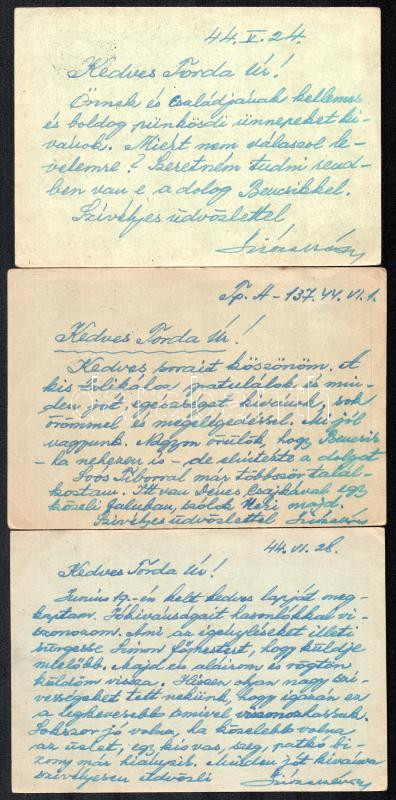 44. V. 24.
Kedves Torda Úr!
Önnek és családjának kellemes
és boldog pünkösdi ünnepeket ki-
vánok. Miért nem válaszol le-
velemre? Szeretném tudni rend-
ben van e a dolog Bencsikkel.
Szívélyes üdvözlettel
Tp. A-137. 44. VI. 1.
Kedves Torda Úr!
Kedves sorait köszönöm. A
kis gratulálok és min-
den jót, egészséget kivánok, sok
örömmel és megelégedéssel. Mi jól
vagyunk. Nagyon örülök, hogy Bencsik
- ha nehezen is - de elintézte a dolgot
Soos Tiborral már többször talál-
koztam. Itt van Dénes Csajkával egy
közeli faluban, szólok Neki majd.
Szívélyes üdvözlettel
44. VI. 28.
Kedves Torda Úr!
Junius 19.-én kelt kedves lapját meg-
kaptam. Jókivánságait hasonlókkal vi-
szonozom. Ami az igényléseket illeti
sürgesse Simon főhadnagyot, hogy küldje
mielőbb. Majd én aláirom és rögtön
küldöm vissza. Hiszen olyan nagy szi-
vességeket tett nekünk, hogy igazán ez
a legkevesebb amivel viszonozhassuk.
Sokszor jó volna, ha közelebb volna
az üzlet, egy kis vas, szeg, patkó bi-
zony már hiányzik. Minden jót kivánva
szívélyesen üdvözli